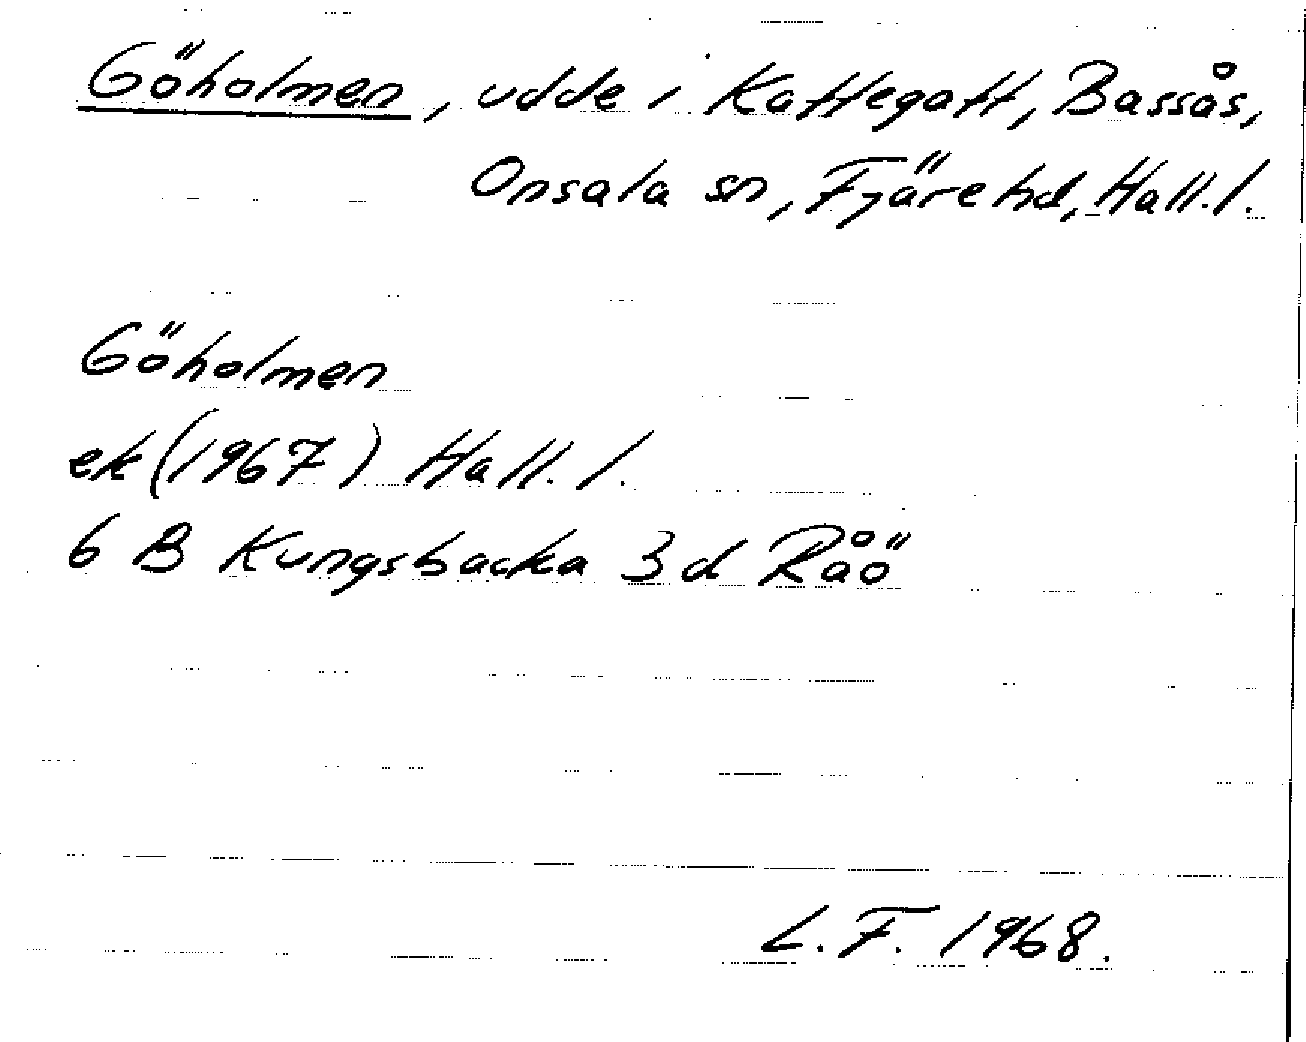 Göholmen, udde i Kattegatt, Bassås,
Onsala sn, Fjäre hd, Hall. l.
Göholmen
ek (1967) Hall. l.
6 B Kungsbacka 3 d Råö
L. F. 1968.